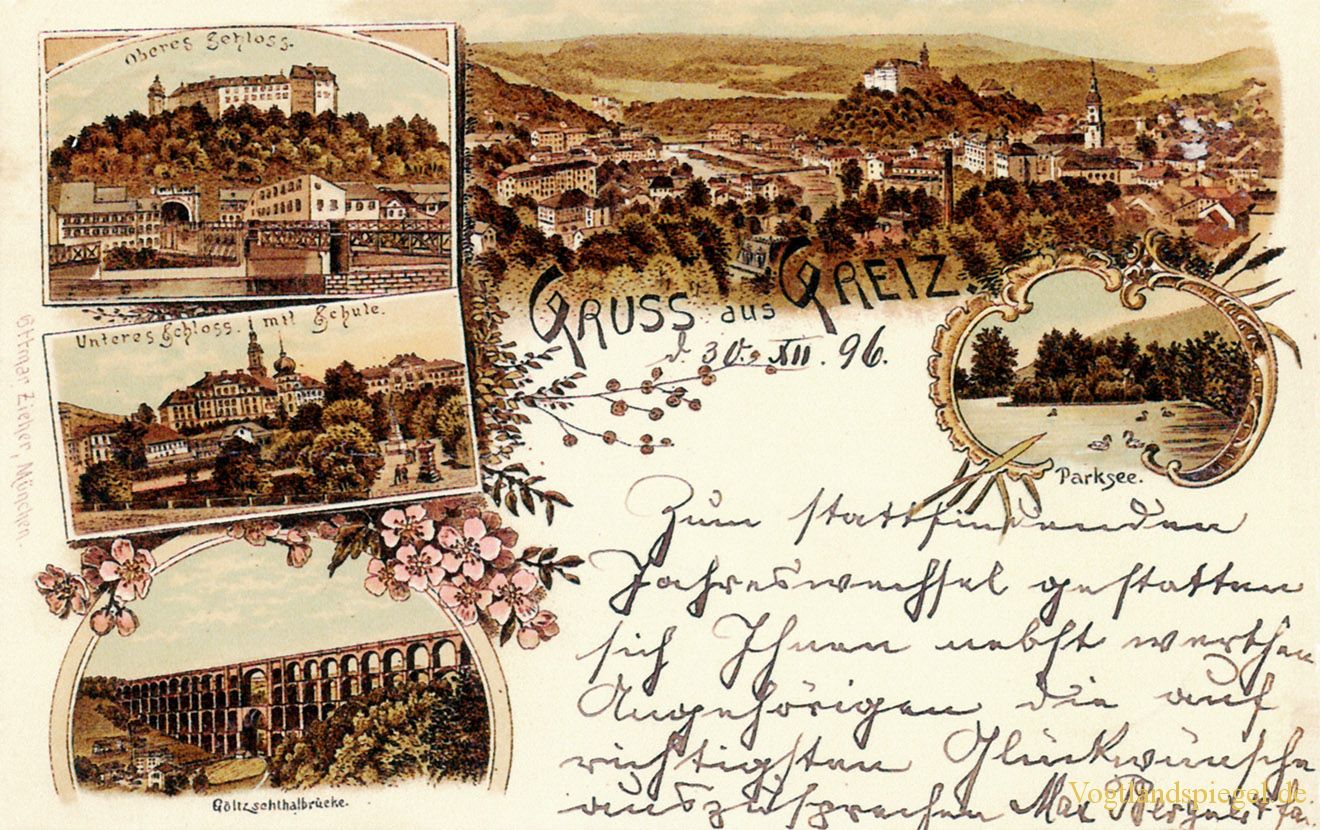 Oberes Schloss.
GRUSS aus GREIZ.
d. 30. XII. 96.
Unteres Schloss. mit Schule.
Ottmar Zieher, München.
Parksee.
Göltzschthalbrücke.
Zum stattfindenden
Jahreswechsel gestatten
sich Ihnen nebst werthen
Angehörigen die auf
richtigsten Glückwünsche
auszusprechen Max
Vogtlandspiegel.de